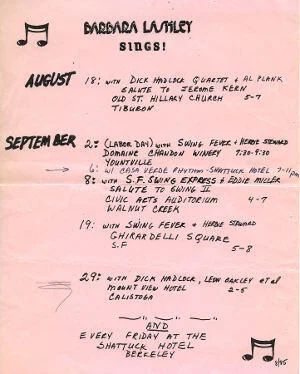 BARBARA LASHLEY
SINGS!
AUGUST 18: WITH DICK HADLOCK QUARTET + AL PLANK
SALUTE TO JEROME KERN
OLD ST. HILLARY CHURCH 5-7
TIBURON
SEPTEMBER 2: (LABOR DAY) WITH SWING FEVER + HERBIE STEWARD
DOMAINE CHANDON WINERY 7:30-9:30
YOUNTVILLE
6: W/ CASA VERDE RHYTHM - SHATTUCK HOTEL 7-11PM
8: WITH S.F. SWING EXPRESS + EDDIE MILLER
SALUTE TO SWING II
CIVIC ARTS AUDITORIUM 4-7
WALNUT CREEK
19: WITH SWING FEVER + HERBIE STEWARD
GHIRARDELLI SQUARE
S.F 5-8
29: WITH DICK HADLOCK, LEON OAKLEY et al
MOUNT VIEW HOTEL 2-5
CALISTOGA
AND
EVERY FRIDAY AT THE
SHATTUCK HOTEL
BERKELEY
8/85